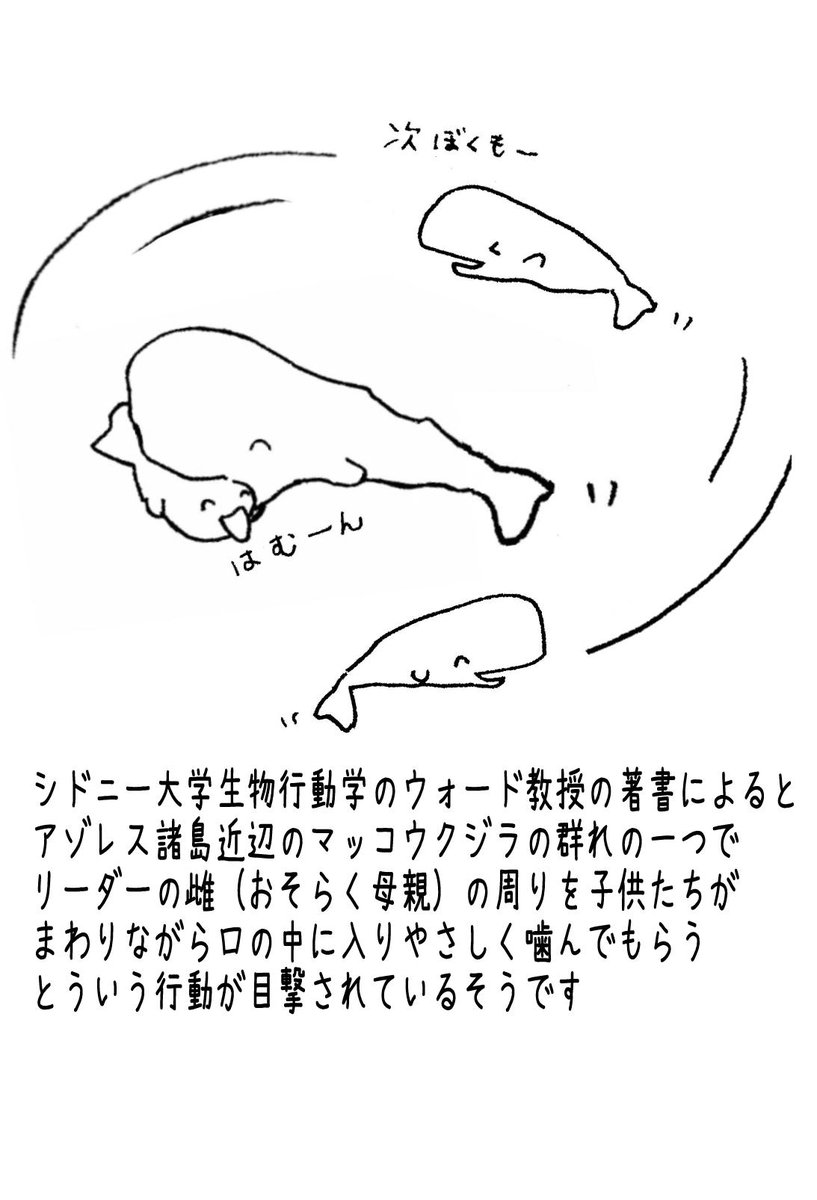 次ぼくもー
はむーん
シドニー大学生物行動学のウォード教授の著書によると
アゾレス諸島近辺のマッコウクジラの群れの一つで
リーダーの雌（おそらく母親）の周りを子供たちが
まわりながら口の中に入りやさしく噛んでもらう
とういう行動が目撃されているそうです